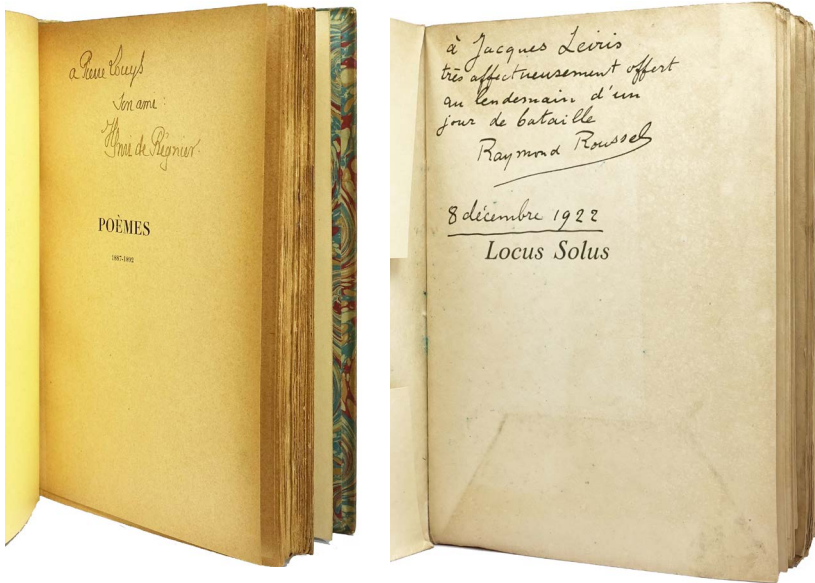 a Pierre Louÿs
son ami:
Henri de Régnier.
POÈMES
1887-1892
à Jacques Leiris
très affectueusement offert
au lendemain d'un
jour de bataille
Raymond Roussel
8 décembre 1922
Locus Solus